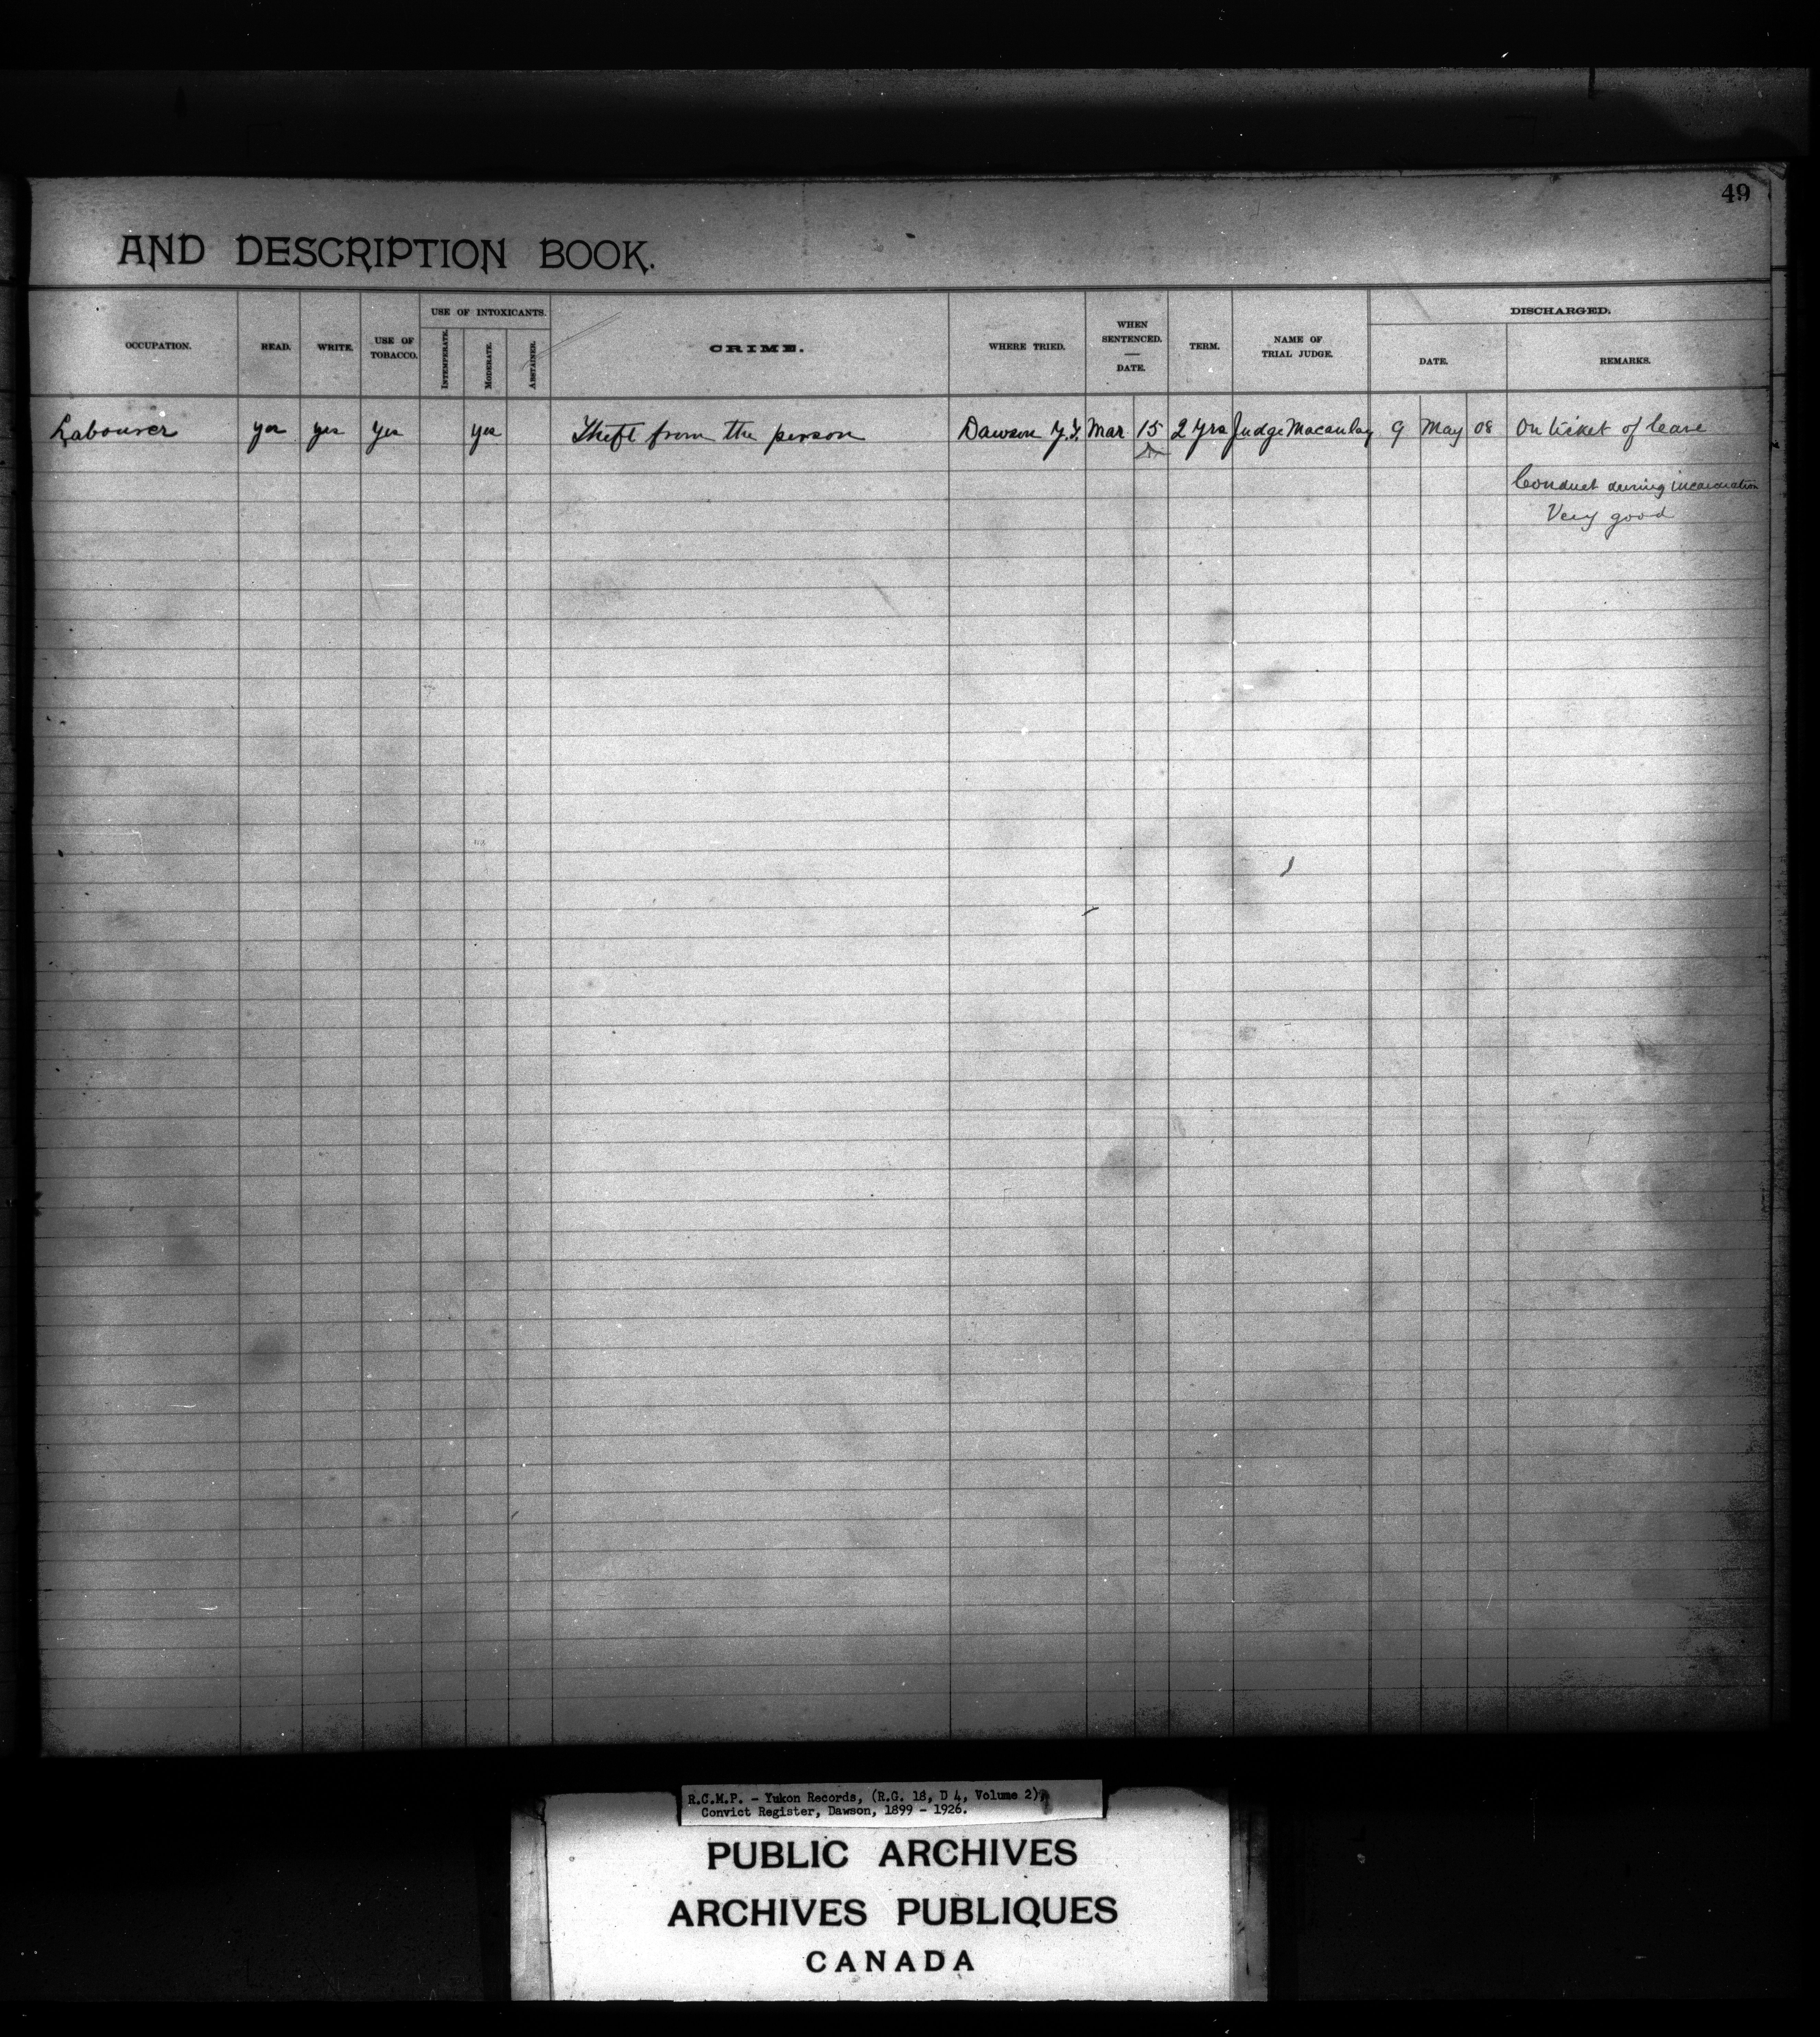 49
AND DESCRIPTION BOOK.
OCCUPATION. READ. WRITE. USE OF TOBACCO. USE OF INTOXICANTS. INTEMPERATE. MODERATE. ABSTAINER. CRIME. WHERE TRIED. WHEN SENTENCED. — DATE. TERM. NAME OF TRIAL JUDGE. DISCHARGED. DATE. REMARKS.
Labourer yes yes yes yes Theft from the person Dawson Y.T. Mar 15 2 yrs Judge Macaulay 9 May 08 On ticket of leave
Conduct during incarceration
Very good
R.C.M.P. - Yukon Records, (R.G. 18, D 4, Volume 2),
Convict Register, Dawson, 1899 - 1926.
PUBLIC ARCHIVES
ARCHIVES PUBLIQUES
CANADA